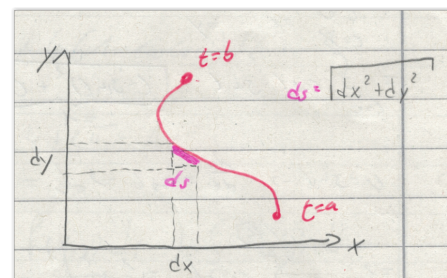 y
t=b
ds = √dx²+dy²
dy
ds
t=a
x
dx